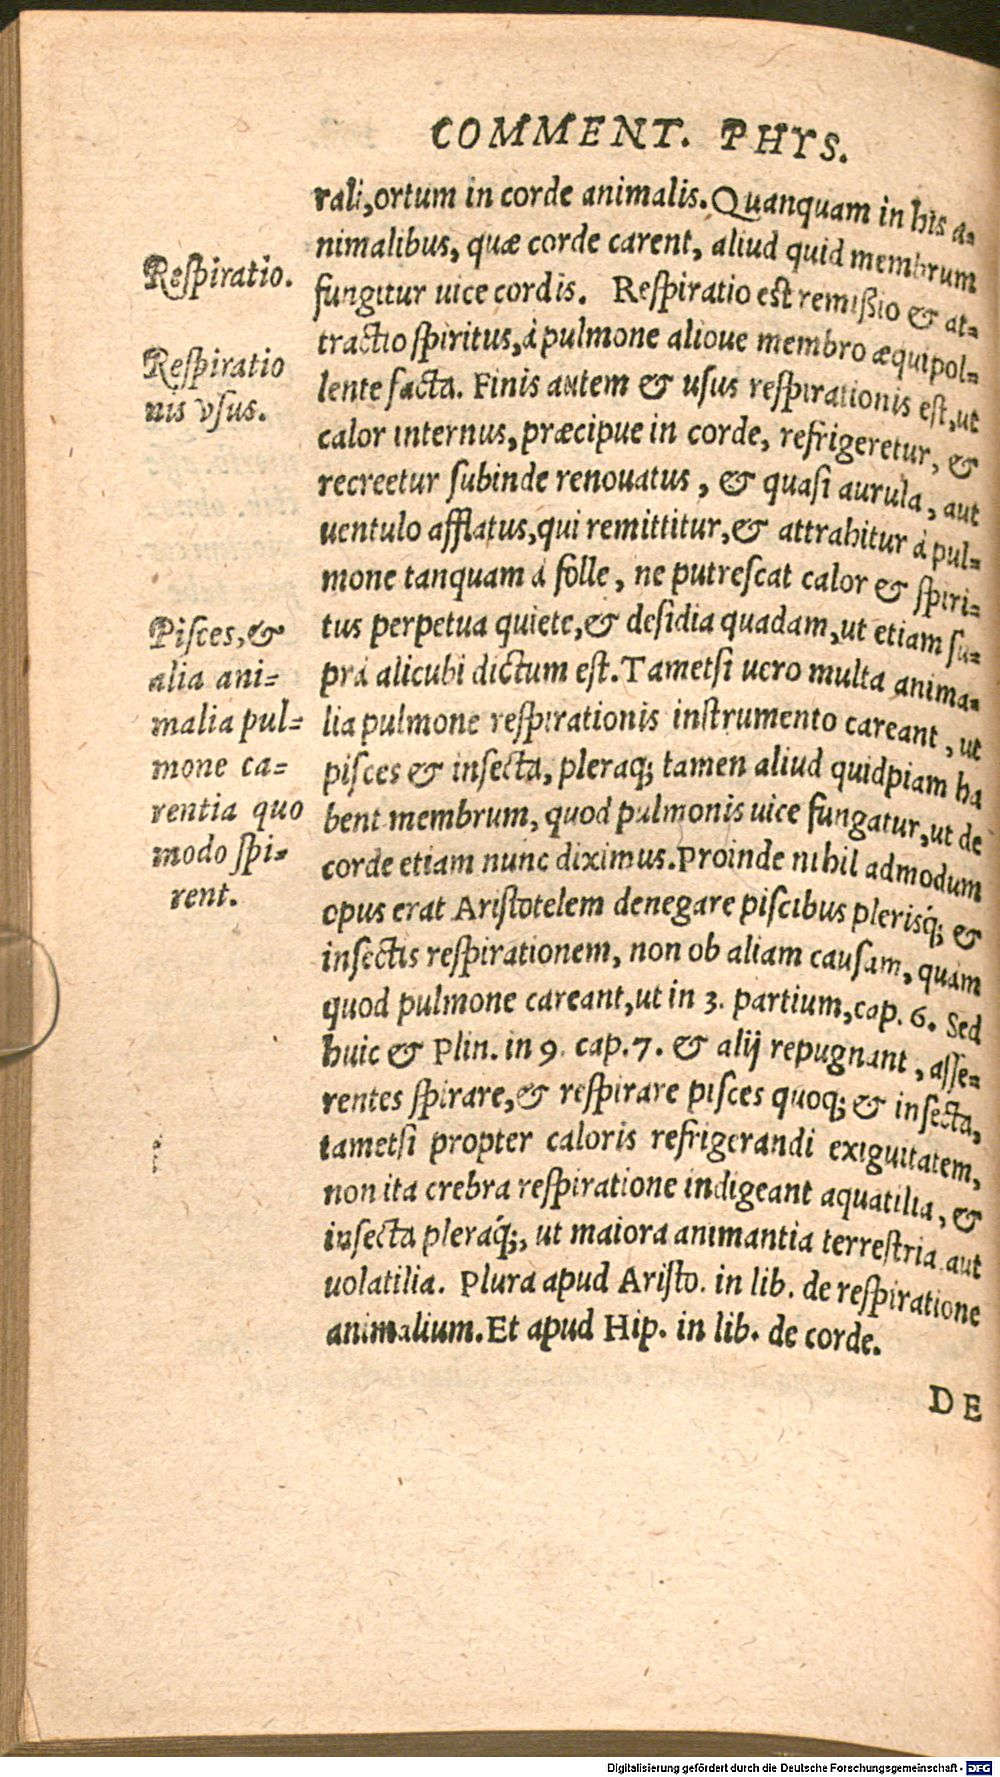 COMMENT. PHYS.
rali, ortum in corde animalis. Quanquam in his a=
nimalibus, quæ corde carent, aliud quid membrum
Respiratio.
fungitur uice cordis. Respiratio est remißio & at=
tractio spiritus, à pulmone alioue membro æquipol=
Respiratio
nis vsus.
lente facta. Finis autem & usus respirationis est, ut
calor internus, præcipue in corde, refrigeretur, &
recreetur subinde renouatus, & quasi aurula, aut
uentulo afflatus, qui remittitur, & attrahitur à pul=
mone tanquam à folle, ne putrescat calor & spiri=
tus perpetua quiete, & desidia quadam, ut etiam su=
prà alicubi dictum est. Tametsi uero multa anima=
lia pulmone respirationis instrumento careant, ut
pisces & insecta, pleraq; tamen aliud quidpiam ha
bent membrum, quod pulmonis uice fungatur, ut de
Pisces, &
alia ani=
malia pul=
mone ca=
rentia quo
modo spi=
rent.
corde etiam nunc diximus. Proinde nihil admodum
opus erat Aristotelem denegare piscibus plerisq́; &
insectis respirationem, non ob aliam causam, quam
quod pulmone careant, ut in 3. partium, cap. 6. Sed
huic & Plin. in 9. cap. 7. & alij repugnant, asse=
rentes spirare, & respirare pisces quoq; & insecta,
tametsi propter caloris refrigerandi exiguitatem,
non ita crebra respiratione indigeant aquatilia, &
insecta pleraq́;, ut maiora animantia terrestria aut
uolatilia. Plura apud Aristo. in lib. de respiratione
animalium. Et apud Hip. in lib. de corde.
DE
Digitalisierung gefördert durch die Deutsche Forschungsgemeinschaft - DFG